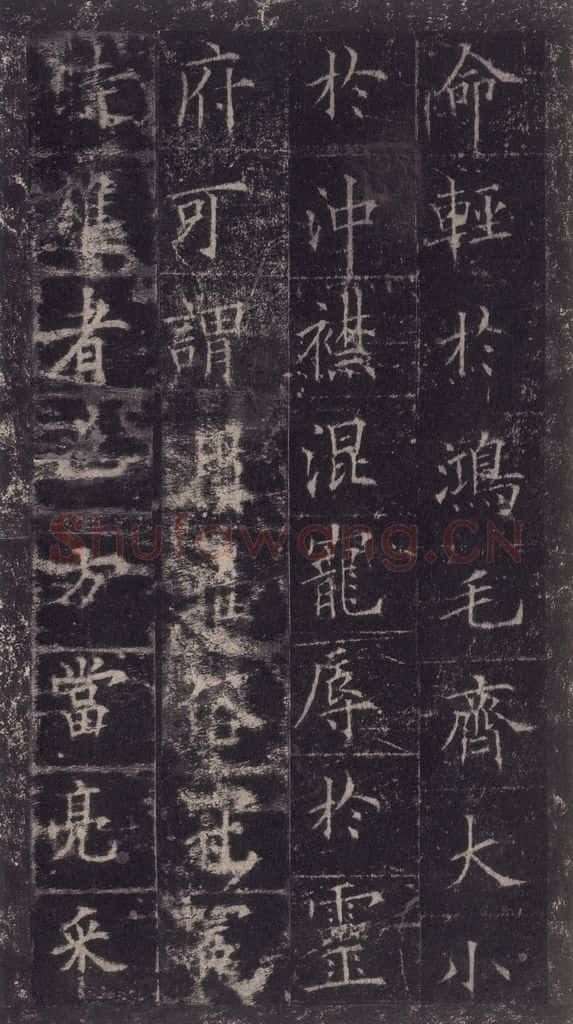 命輕於鴻毛齊大小
於沖襟混寵辱於靈
府可謂俗
準者也方當亮采
Shufawang.CN